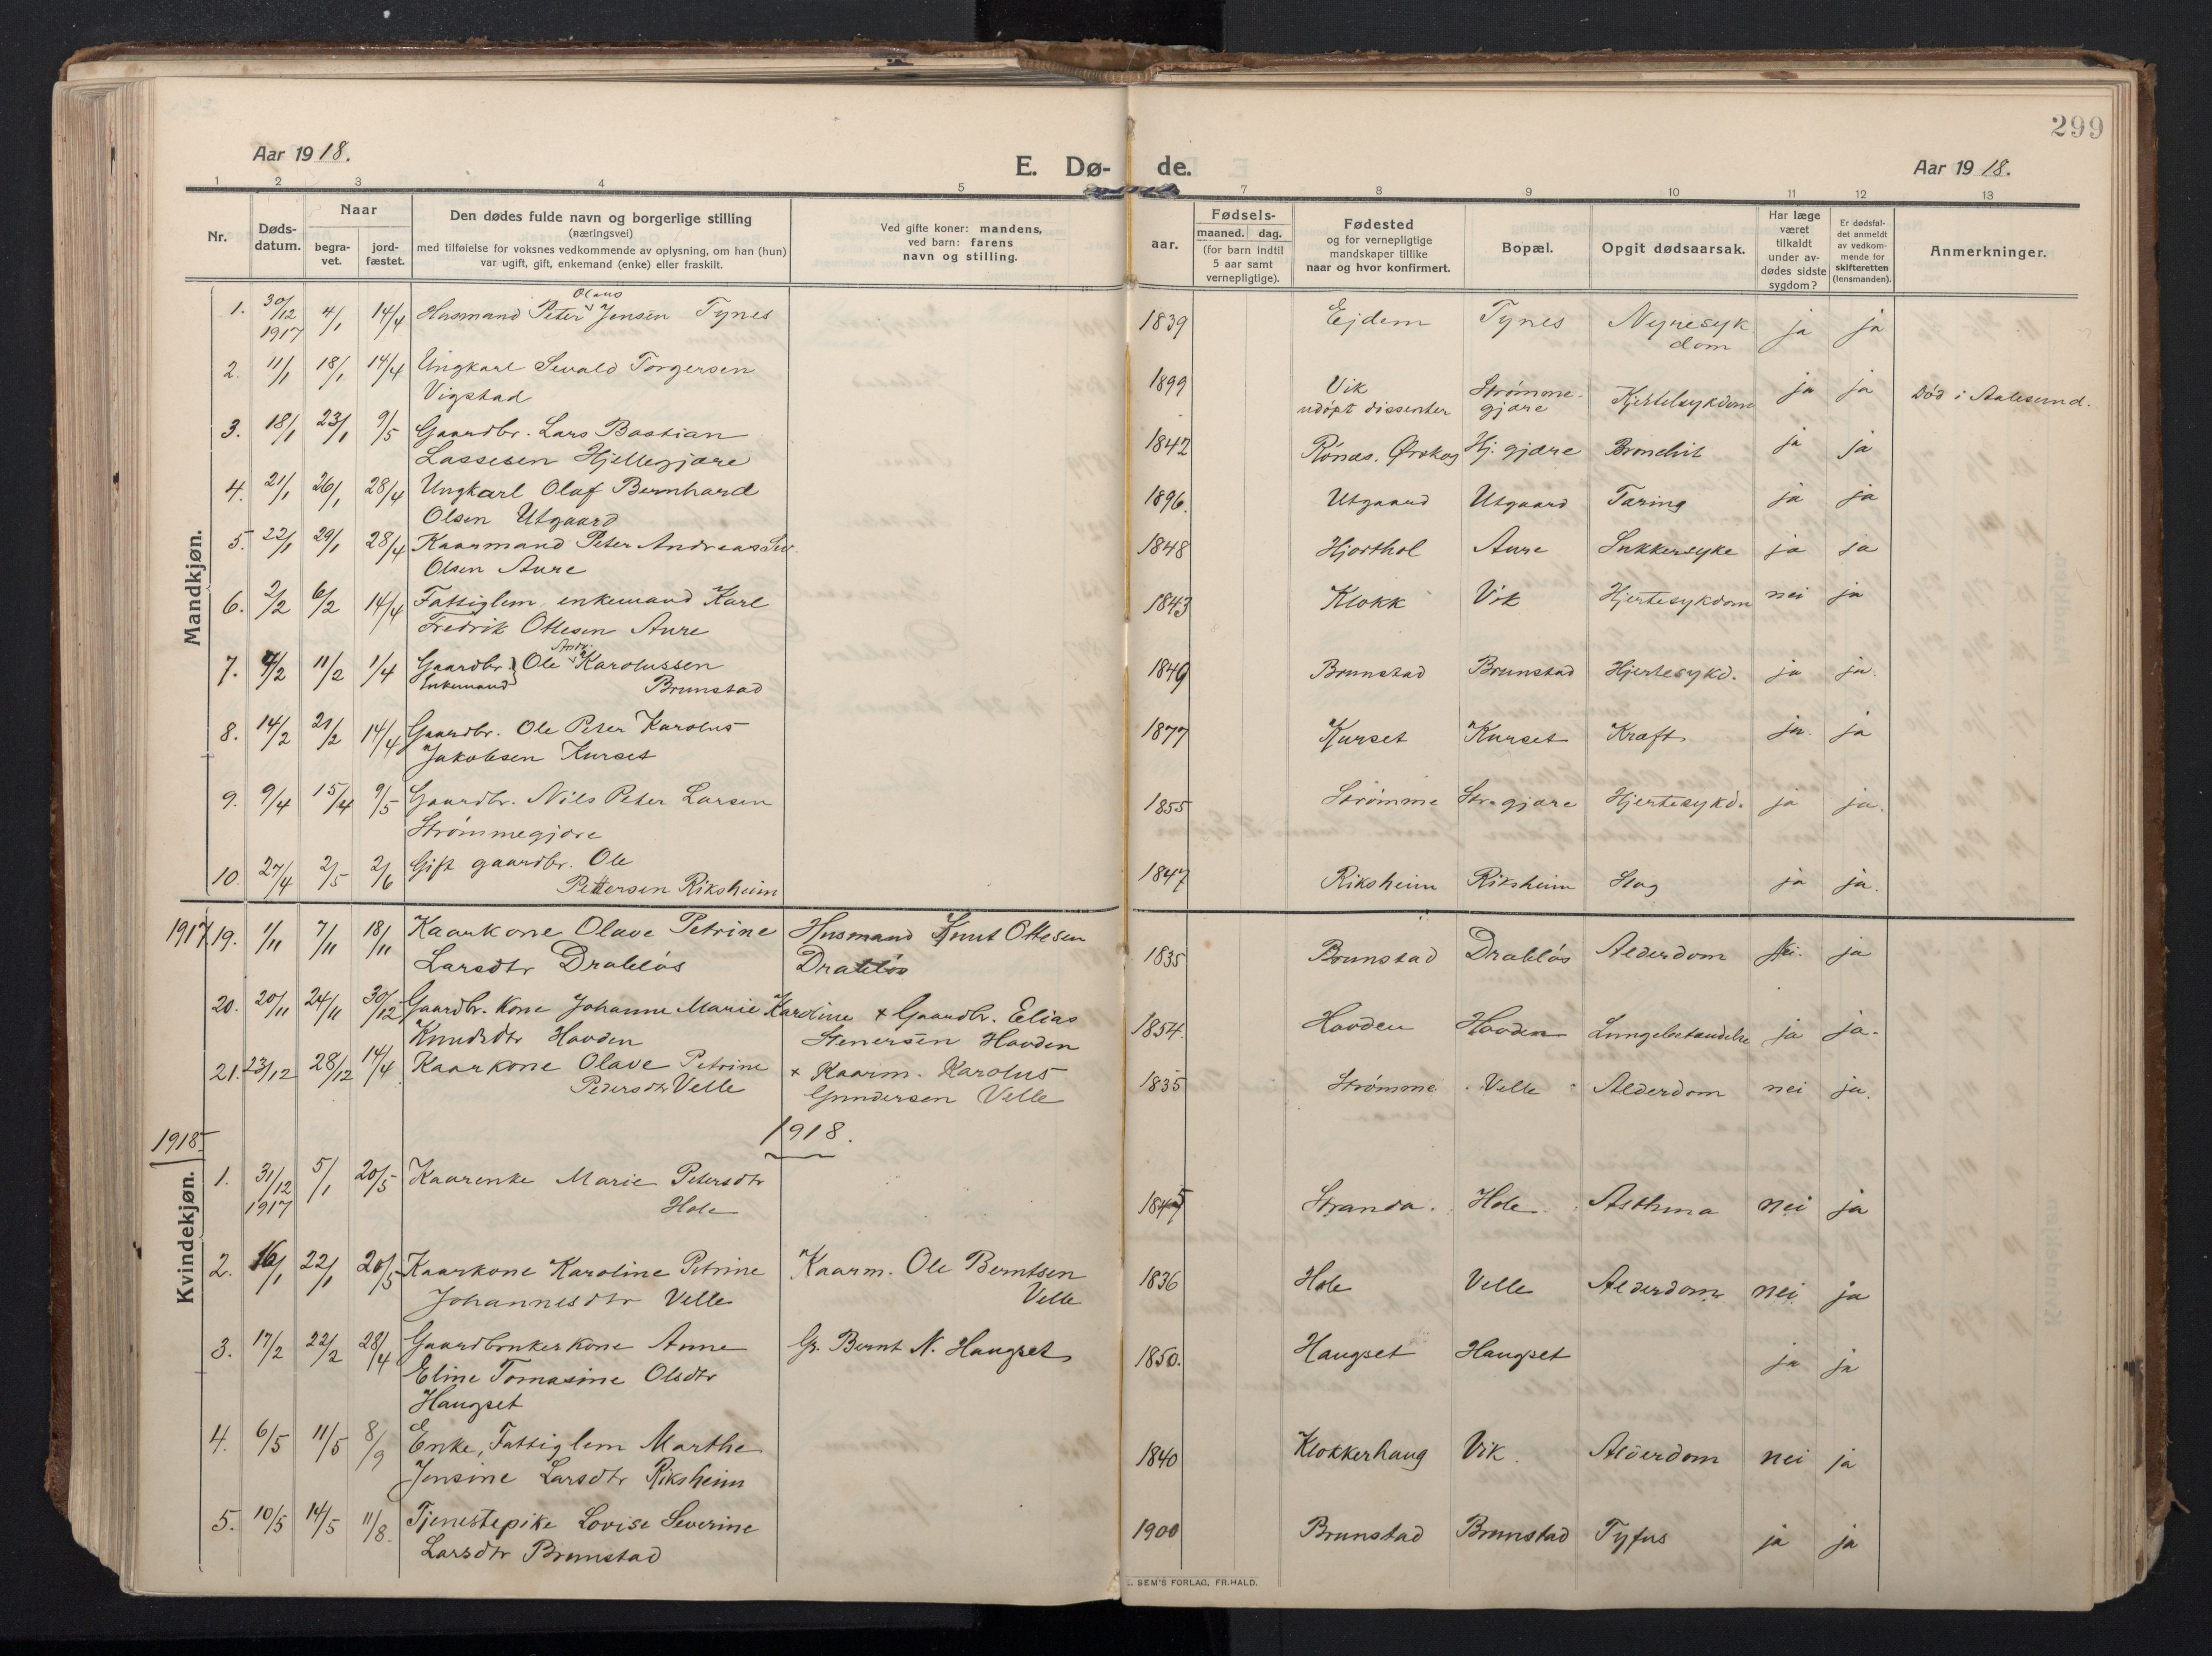 299
Aar 1918.
E. Dø- de.
Aar 1918.
1 2 3 4 5 7 8 9 10 11 12 13
Nr.
Døds-
datum.
Naar
begra-
vet.
jord-
fæstet.
Den dødes fulde navn og borgerlige stilling
(næringsvei)
med tilføielse for voksnes vedkommende av oplysning, om han (hun)
var ugift, gift, enkemand (enke) eller fraskilt.
Ved gifte koner: mandens,
ved barn: farens
navn og stilling.
aar.
Fødsels-
maaned. dag.
(for barn indtil
5 aar samt
vernepligtige).
Fødested
og for vernepligtige
mandskaper tillike
naar og hvor konfirmert.
Bopæl.
Opgit dødsaarsak.
Har læge
været
tilkaldt
under av-
dødes sidste
sygdom?
Er dødsfal-
det anmeldt
av vedkom-
mende for
skifteretten
(lensmanden).
Anmerkninger.
Mandkjøn.
Olaus
1. 30/12 4/1 14/4 Husmand Peter Jensen Tynes 1839 Ejdem Tynes Nyresyk ja ja
1917 dom
2. 11/1 18/1 14/4 Ungkarl Sevald Torgersen 1899 Vik Strømme- Kjertelsykdom ja ja Død i Aalesund.
Vigstad udøpt dissenter gjære
3. 18/1 23/1 9/5 Gaardbr. Lars Bastian 1842 Rónæs. Ørskog Hj. gjære Bronchit ja ja
Lassesen Hjellegjære
4. 21/1 26/1 28/4 Ungkarl Olaf Bernhard 1896. Utgaard Utgaard Taring ja ja
Olsen Utgaard
5. 22/1 29/1 28/4 Kaarmand Peter Andreas 1848 Hjorthol Aure Sukkersyke ja ja
Olsen Aure
6. 2/2 6/2 14/4 Fattiglem, enkemand Karl 1843 Klokk Vik Hjertesykdom nei ja
Fredrik Ottesen Aure
Andr.
7. 4/2 11/2 1/4 Gaardbr. Ole Karolussen 1849 Brunstad Brunstad Hjertesykd. ja ja.
Enkemand Brunstad
8. 14/2 21/2 14/4 Gaardbr. Ole Peter Karolus 1877 Kurset Kurset Kraft ja ja
Jakobsen Kurset
9. 9/4 15/4 9/5 Gaardbr. Nils Peter Larsen 1855 Strømme Str. gjære Hjertesykd. ja ja.
Strømmegjære
10. 27/4 2/5 2/6 Gift gaardbr. Ole 1847 Riksheim Riksheim Slag ja ja.
Pettersen Riksheim
1917 19. 1/11 7/11 18/11 Kaarkone Olave Petrine Husmand Knut Ottesen 1835 Brunstad Drabløs Alderdom nei. ja
Larsdtr Drabløs Drabløs
20. 20/11 24/11 30/12 Gaardbr. kone Johanne Marie Karoline + Gaardbr. Elias 1854. Hovden Hovden Lungebetændelse ja ja.
Knudsdtr Hovden Stenersen Hovden
21. 23/12 28/12 14/4 Kaarkone Olave Petrine + Kaarm. Karolus 1835 Strømme Velle Alderdom nei ja.
Pedersdtr Velle Gundersen Velle
1918. 1918.
Kvindekjøn.
1. 31/12 5/1 20/5 Kaarenke Marie Petersdtr 1845 Stranda. Hole. Asthma nei ja
1917 Hole
2. 16/1 22/1 20/5 Kaarkone Karoline Petrine Kaarm. Ole Berntsen 1836 Hole Velle Alderdom nei ja
Johannesdtr Velle Velle
3. 17/2 22/2 28/4 Gaardbrukerkone Anne Gr. Bernt N. Haugset 1850. Haugset Haugset ja ja
Eline Tomasine Olsdtr
Haugset
4. 6/5 11/5 8/9 Enke, Fattiglem Marthe 1840 Klokkerhaug Vik. Alderdom nei ja
Jensine Larsdtr Riksheim
5. 10/5 14/5 11/8. Tjenestepike Lovise Severine 1900 Brunstad Brunstad Tyfus ja ja
Larsdtr Brunstad
SEM'S FORLAG, FR.HALD.